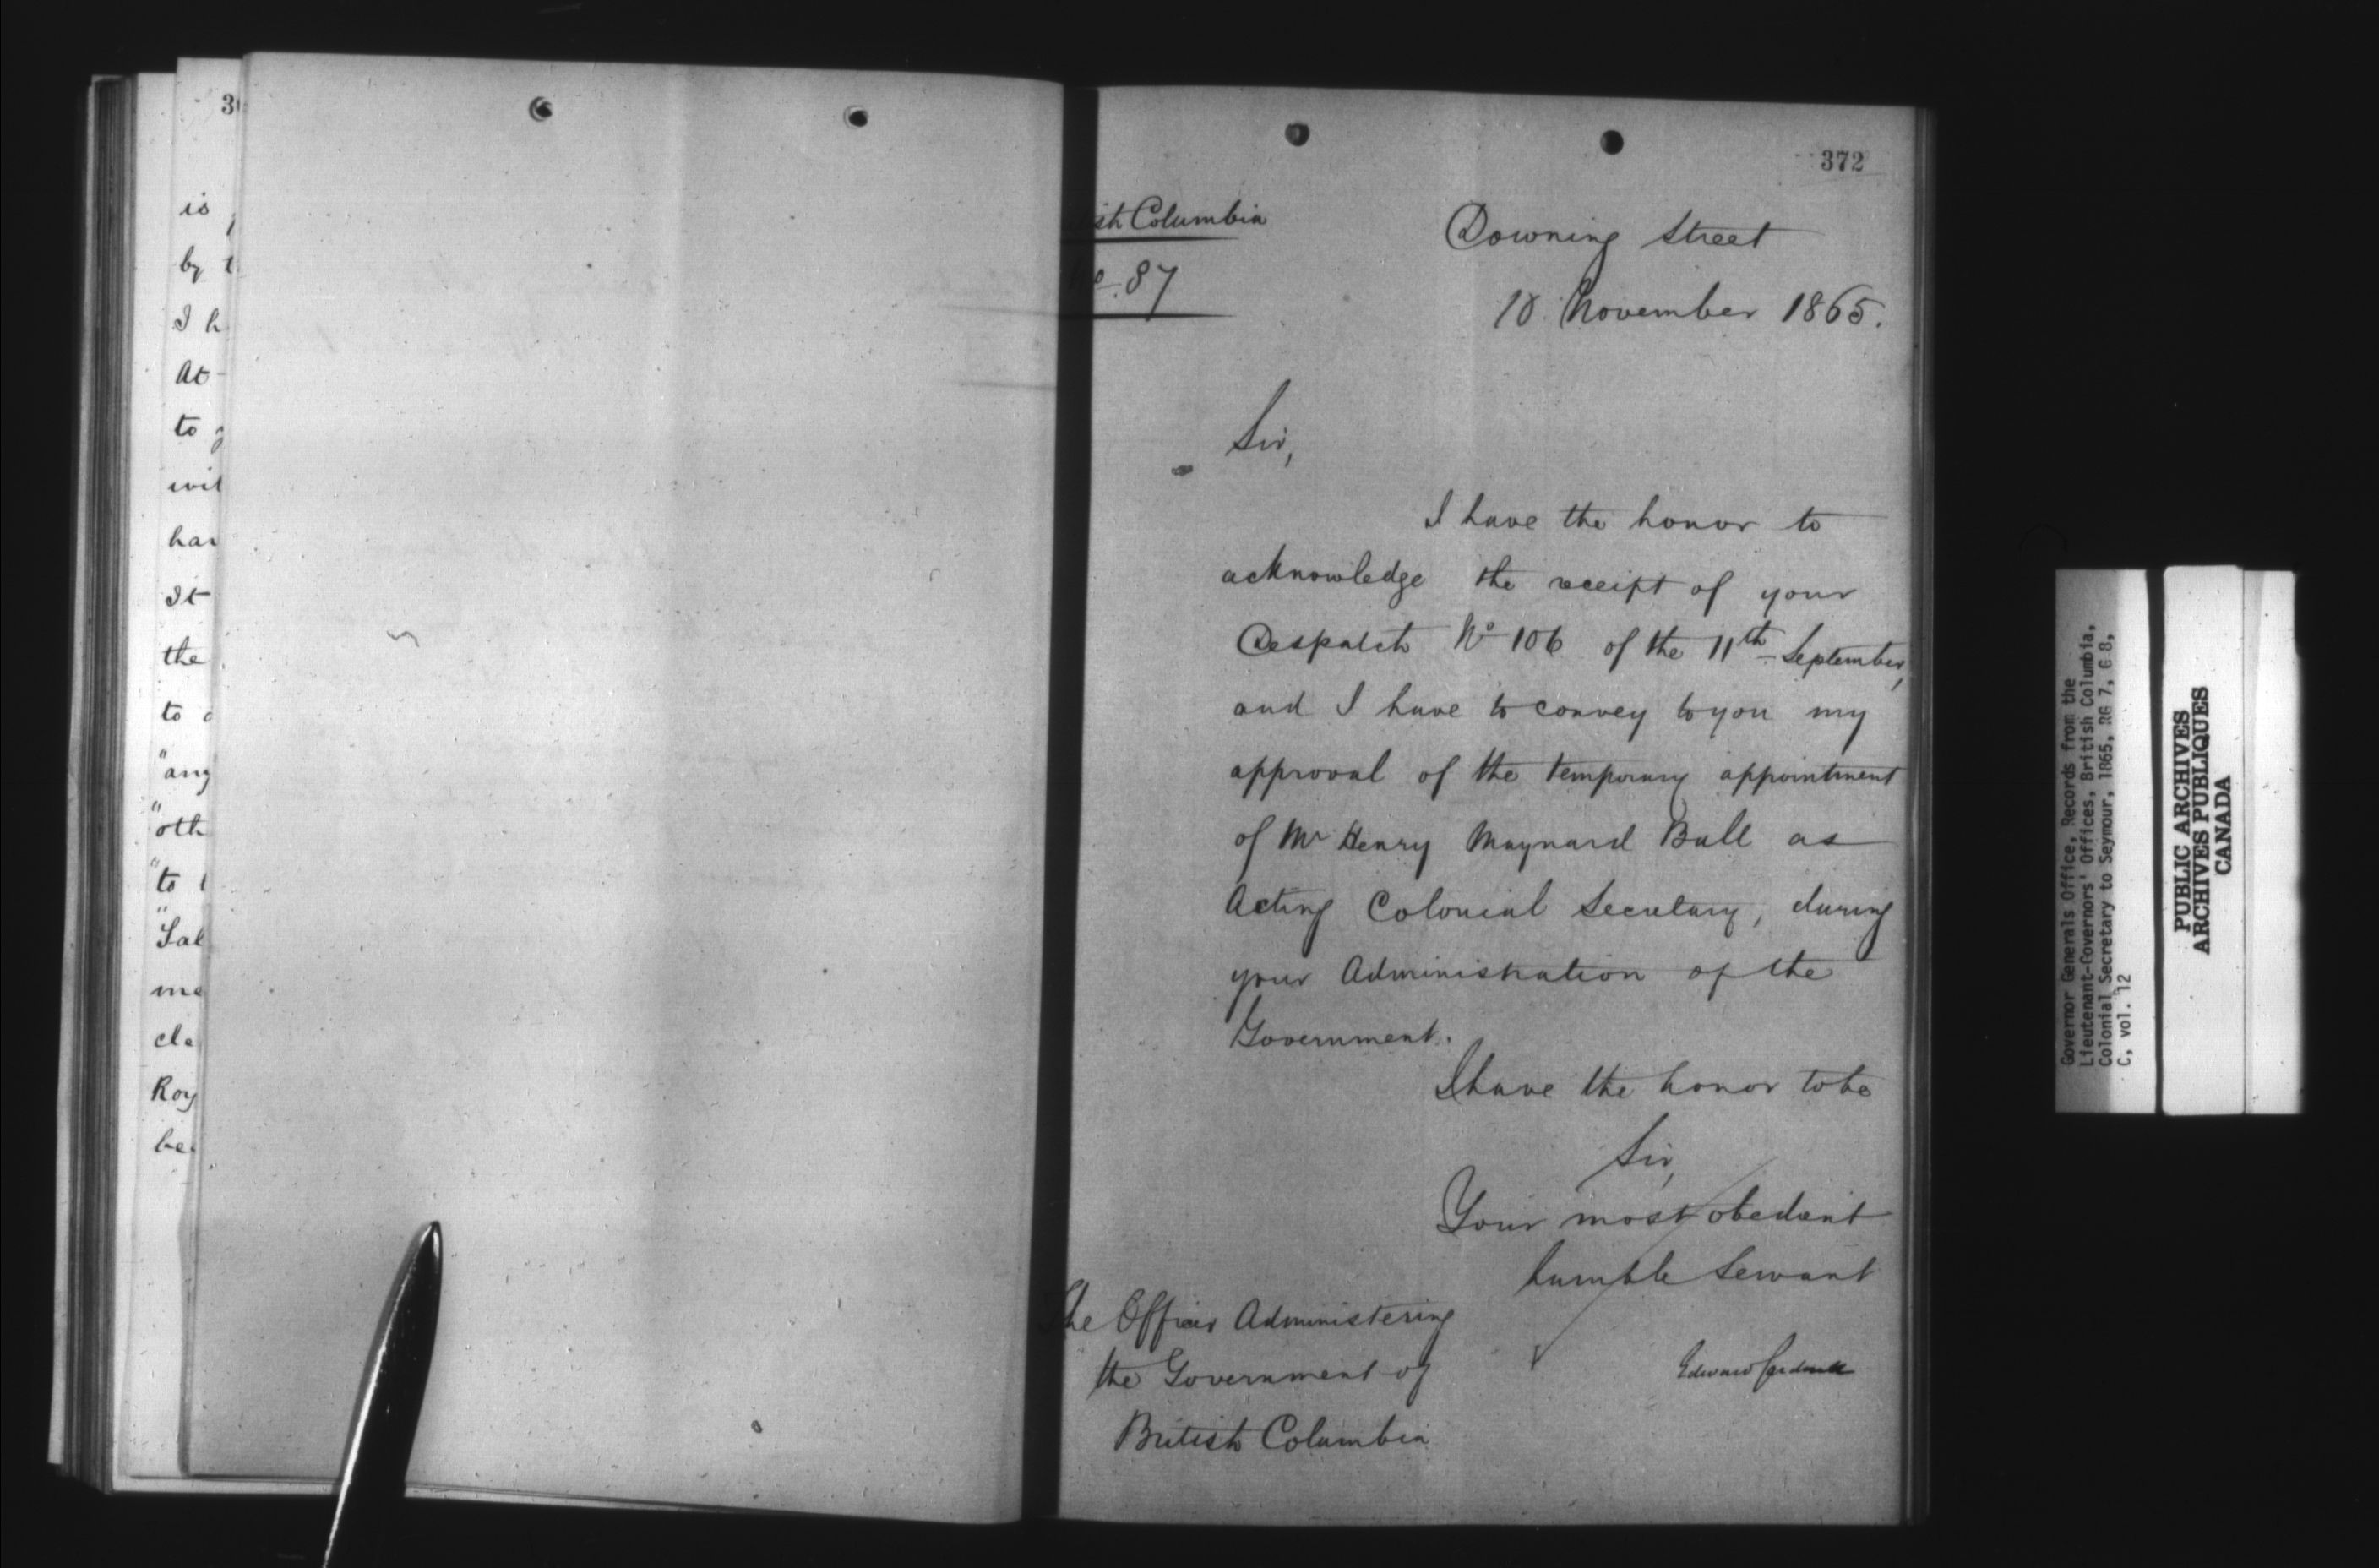 is
by t
I h
At
to g
wil
har
It
the
to
"any
"oth
"to t
"Sal
me
cle
Roy
be
372
ish Columbia
o. 87
Downing Street
18 November 1865.
Sir,
I have the honor to
acknowledge the receipt of your
Despatch No 106 of the 11th September,
and I have to convey to you my
approval of the temporary appointment
of Mr Henry Maynard Ball as
Acting Colonial Secretary, during
your Administration of the
Government.
I have the honor to be
Sir,
Your most obedient
humble Servant
Edward Cardwell
The Officer Administering
the Government of
British Columbia
Governor Generals Office, Records from the
Lieutenant-Governors' Offices, British Columbia,
Colonial Secretary to Seymour, 1865, RG 7, G 8,
C, vol. 12
PUBLIC ARCHIVES
ARCHIVES PUBLIQUES
CANADA